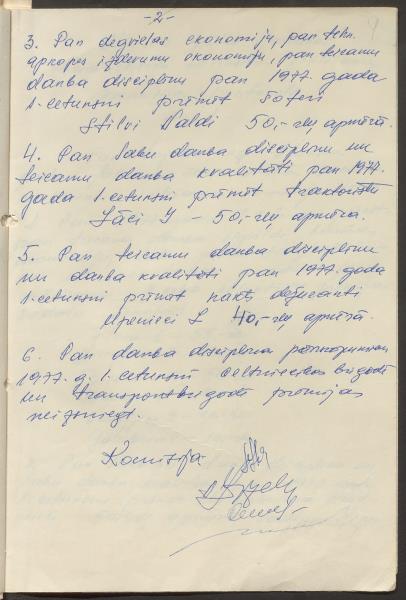 -2-
3. Par degvielas ekonomiju, par tehn.
apkopes izdevumu ekonomiju, par teicamu
darba disciplīnu par 1977. gada
1. ceturksni prēmēt šoferi
Stilvi Valdi 50,- rbļ apmērā.
4. Par labu darba disciplīnu un
teicamu darba kvalitāti par 1977.
gada 1. ceturksni prēmēt traktoristu
Lāci J - 50,- rbļ apmēra.
5. Par teicamu darba disciplīnu
un darba kvalitāti par 1977. gada
1. ceturksni prēmēt nakts dežuranti
Upenieci L 40,- rbļ apmērā.
6. Par darba disciplīna pārkāpumiem
1977. g. 1. ceturksnī celtniecības brigādi
un transportbrigādi prēmijas
neizsniegt.
Komisija